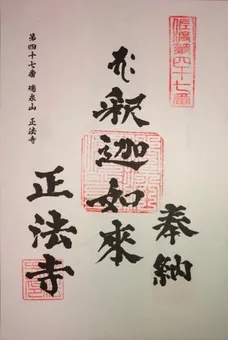 佐渡第四十七番
奉納
釈迦如來
正法寺
第四十七番 瑞泉山 正法寺